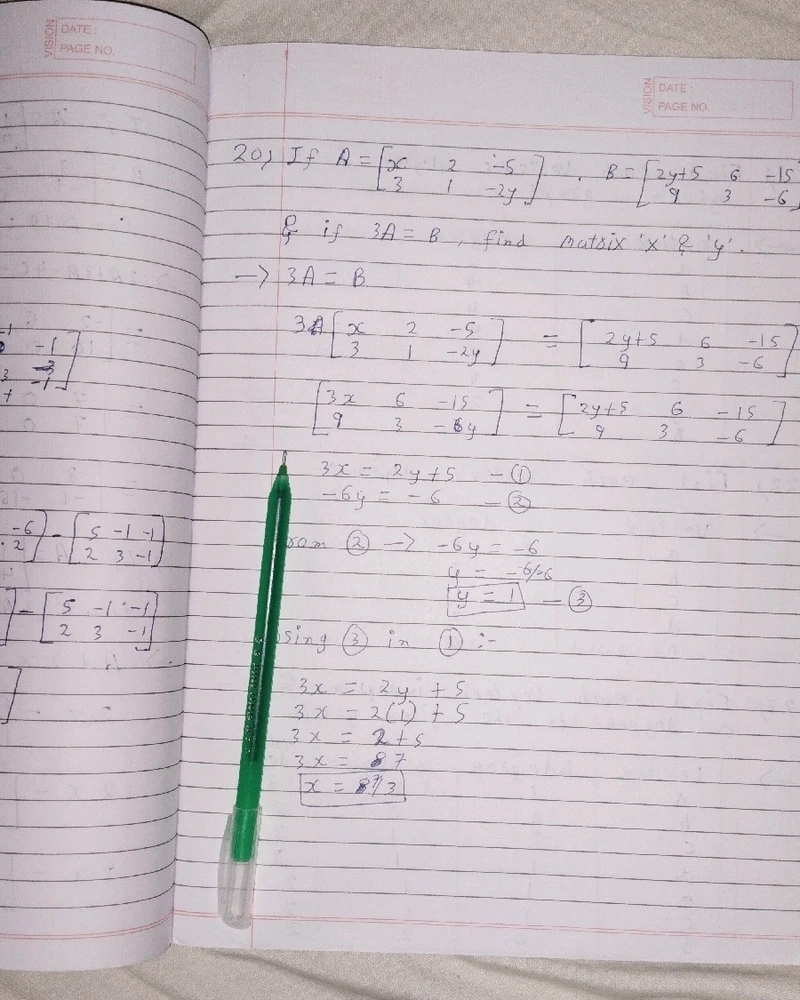 VISION DATE :
PAGE NO.
-1
-1
3 -3
+ -1
-6
2 ] - [ 5 -1 -1
2 3 -1 ]
] - [ 5 -1 -1
2 3 -1 ]
]
VISION DATE :
PAGE NO.
20) If A = [ x 2 -5 ] . B = [ 2y+5 6 -15
3 1 -2y 9 3 -6 ]
& if 3A = B, find matrix 'x' & 'y'.
-> 3A = B
3 [ x 2 -5 ] = [ 2y+5 6 -15
3 1 -2y 9 3 -6 ]
[ 3x 6 -15 ] = [ 2y+5 6 -15 ]
9 3 -6y 9 3 -6
3x = 2y+5 - ①
-6y = -6 - ②
rom ② -> -6y = -6
y = -6/-6
y = 1 - ③
sing ③ in ① :-
3x = 2y + 5
3x = 2(1) + 5
3x = 2+5
3x = 7
x = 7/3